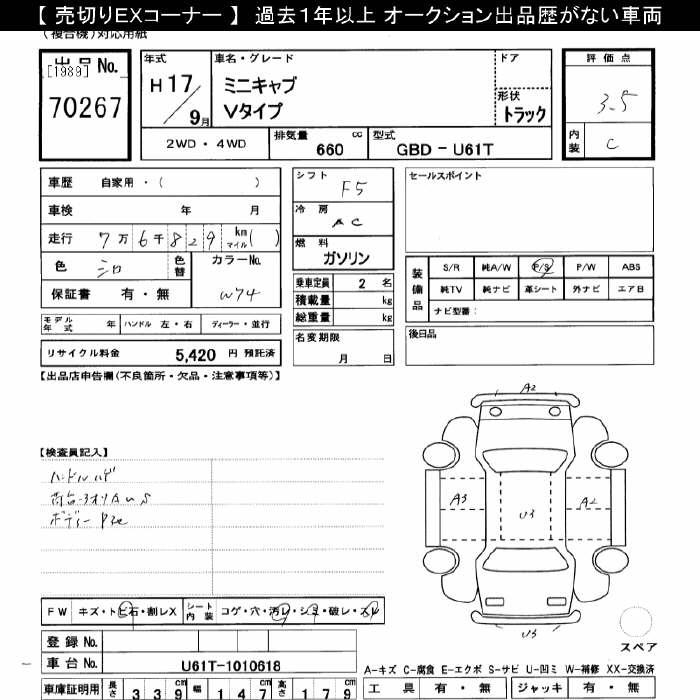 【 売切りEXコーナー 】 過去1年以上 オークション出品歴がない車両
(複合機)対応用紙
出品 No.
[1989]
70267
年式
H 17/9月
車名・グレード
ミニキャブ
Vタイプ
ドア
形状
トラック
評価点
3.5
内装
C
2WD・4WD
排気量 660 cc
型式 GBD - U61T
車歴 自家用・( )
車検 年 月
走行 7万6千829 km マイル ( )
色 シロ 色替
カラーNo.
W74
保証書 有・無
シフト
F5
冷房
AC
燃料
ガソリン
乗車定員 2 名
積載量 kg
総重量 kg
セールスポイント
装備品
S/R 純A/W P/S P/W ABS
純TV 純ナビ 革シート 外ナビ エア日
ナビ型番:
モデル年式 年 ハンドル 左・右 ディーラー・並行
リサイクル料金 5,420 円 預託済
名変期限
月 日
後日品
【出品店申告欄(不良箇所・欠品・注意事項等)】
【検査員記入】
ハンドルハゲ
A2
A3
U3
A2
U3
スペア
FW キズ・トビ石・割レX
シート内装 コゲ・穴・汚レ・シミ・破レ・スレ
登録 No.
車台 No. U61T-1010618
車庫証明用 長さ 339 cm 幅 147 cm 高さ 179 cm
A-キズ C-腐食 E-エクボ S-サビ U-凹ミ W-補修 XX-交換済
工具 有・無 ジャッキ 有・無